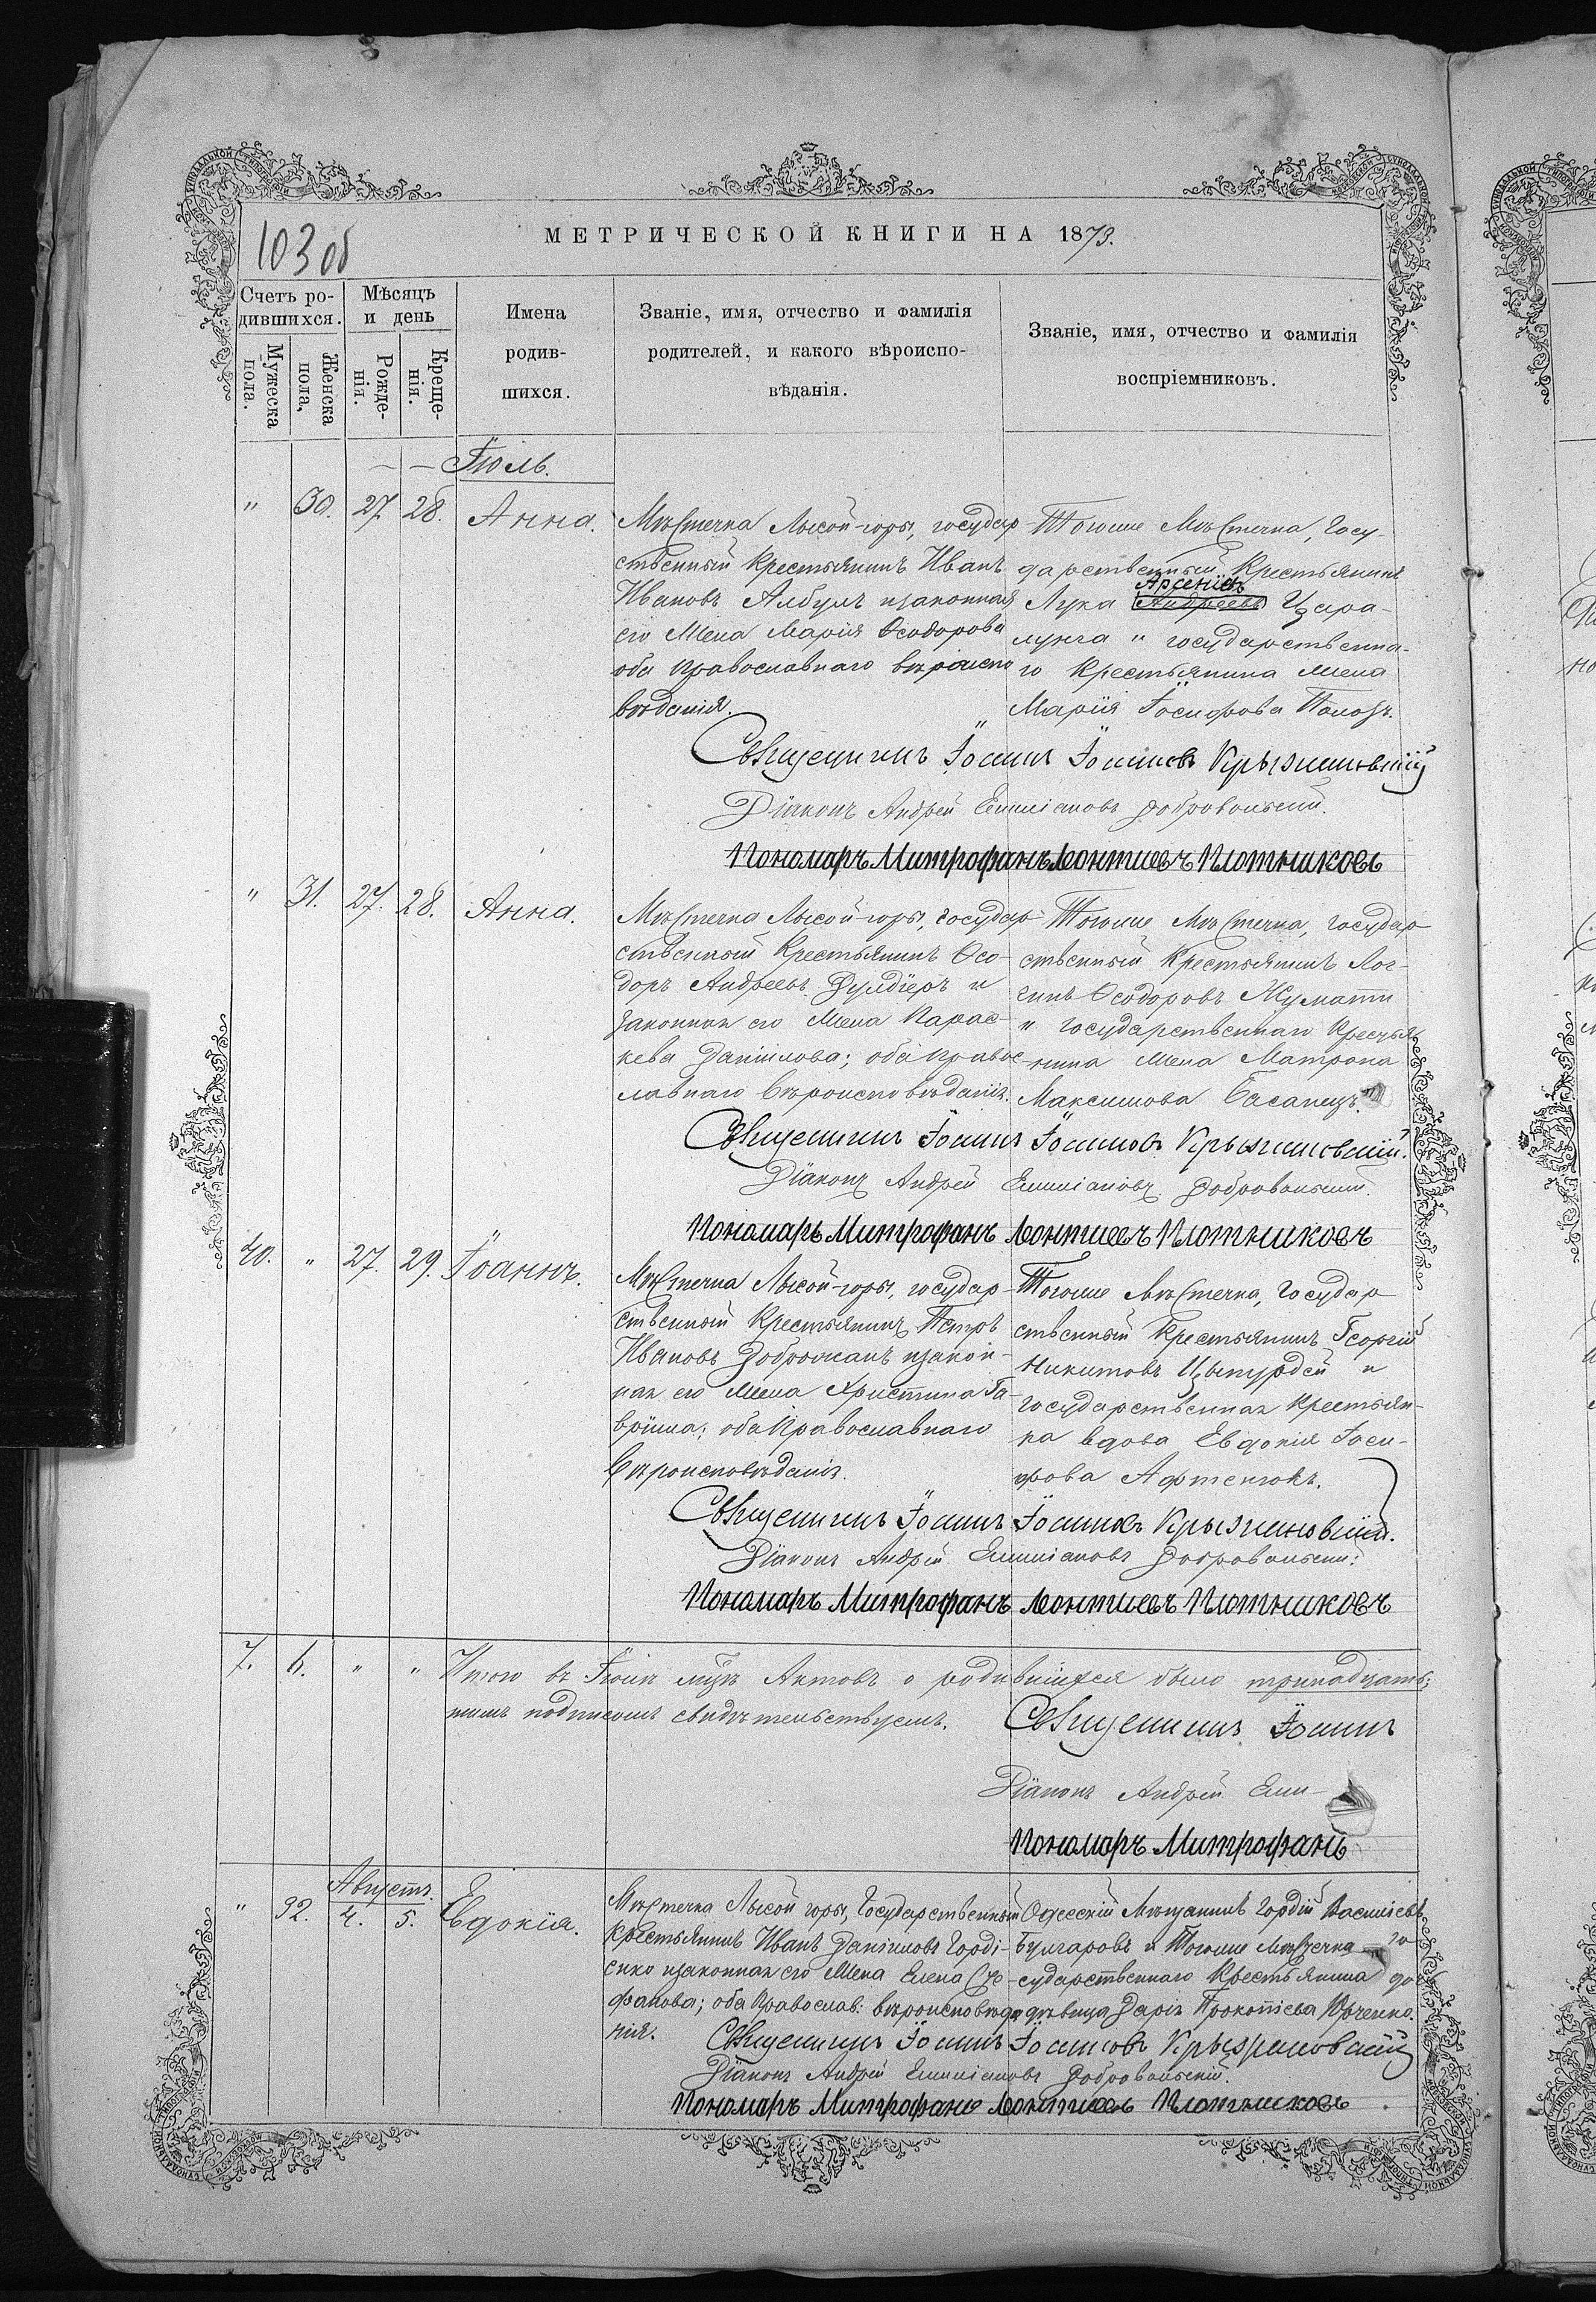 103 об
МЕТРИЧЕСКОЙ КНИГИ НА 1873.
Счетъ ро-
дившихся.
Мужеска
пола.
Женска
пола,
Мѣсяцъ
и день
Рожде-
нія.
Креще-
нія.
Имена
родив-
шихся.
Званіе, имя, отчество и фамилія
родителей, и какого вѣроиспо-
вѣданія.
Званіе, имя, отчество и фамилія
воспріемниковъ.
— — Іюль.
" 30. 27. 28. Анна.
Мѣстечка Лысой-горы, государ
ственный Крестьянинъ Иванъ
Ивановъ Албулъ изаконная
его Жена Марія Ѳеодорова
оба Православнаго вѣроиспо
вѣданія.
Тогоже Мѣстечка, Госу-
дарственный Крестьянинъ
Арсеніевъ
Лука Андреевъ Цара-
лунга " государственна-
го Крестьянина жена
Марія Іосифова Полозъ.
Священникъ Іоаннъ Іоанновъ Крыжановскій
Діаконъ Андрей Емиліановъ Добровольскій.
Пономарь Митрофанъ Леонтиевъ Плотниковъ
" 31. 27. 28. Анна.
Мѣстечка Лысой-горы, государ
ственный Крестьянинъ Ѳео-
доръ Андреевъ Дулдіеръ и
законная его Жена Парас-
кева Даніилова; оба Правос-
лавнаго Вѣроисповѣданія.
Тогоже Мѣстечка, государ
ственный Крестьянинъ Лог-
гинъ Ѳеодоровъ Жуматти
и государственнаго Крестья
нина жена Матрона
Максимова Басанецъ.
Священникъ Іоаннъ Іоанновъ Крыжановскій.
Діаконъ Андрей Емиліановъ Добровольскій.
Пономарь Митрофанъ Леонтиевъ Плотниковъ
40. " 27. 29. Іоаннъ.
Мѣстечка Лысой-горы, государ-
ственный Крестьянинъ Петръ
Ивановъ Доброжанъ изакон-
ная его жена Христина Га-
вріила; оба Православнаго
Вѣроисповѣданія.
Тогоже Мѣстечка, Государ
ственный Крестьянинъ Георгій
Никитовъ Цынурдей и
государственная Крестьян-
ка вдова Евдокія Іоси-
фова Афтенюкъ.
Священникъ Іоаннъ Іоанновъ Крыжановскій.
Діаконъ Андрей Емиліановъ Добровольскій:
Пономарь Митрофанъ Леонтиевъ Плотниковъ
7. 6. " " Итого въ Іюлѣ мцѣ Актовъ о родившихся было тринадцать;
нашъ подписомъ свидѣтельствуемъ.
Священникъ Іоаннъ
Діаконъ Андрей Еми-
Пономарь Митрофанъ
Августъ.
" 32. 4. 5. Евдокія.
Мѣстечка Лысой горы, Государственный
Крестьянинъ Иванъ Даніиловъ Горді-
енко изаконная его Жена Елена Сте-
фанова; оба Православ: вѣроисповѣда
нія.
Одесскій Мѣщанинъ Гордій Василіевъ
Булгаровъ и Тогоже Мѣстечка го
сударственнаго Крестьянина до
дѣвица Дарія Прокопіева Юрченко.
Священникъ Іоаннъ Іоанновъ Крыжановскій
Діаконъ Андрей Емиліановъ Добровольскій.
Пономарь Митрофанъ Леонтиевъ Плотниковъ